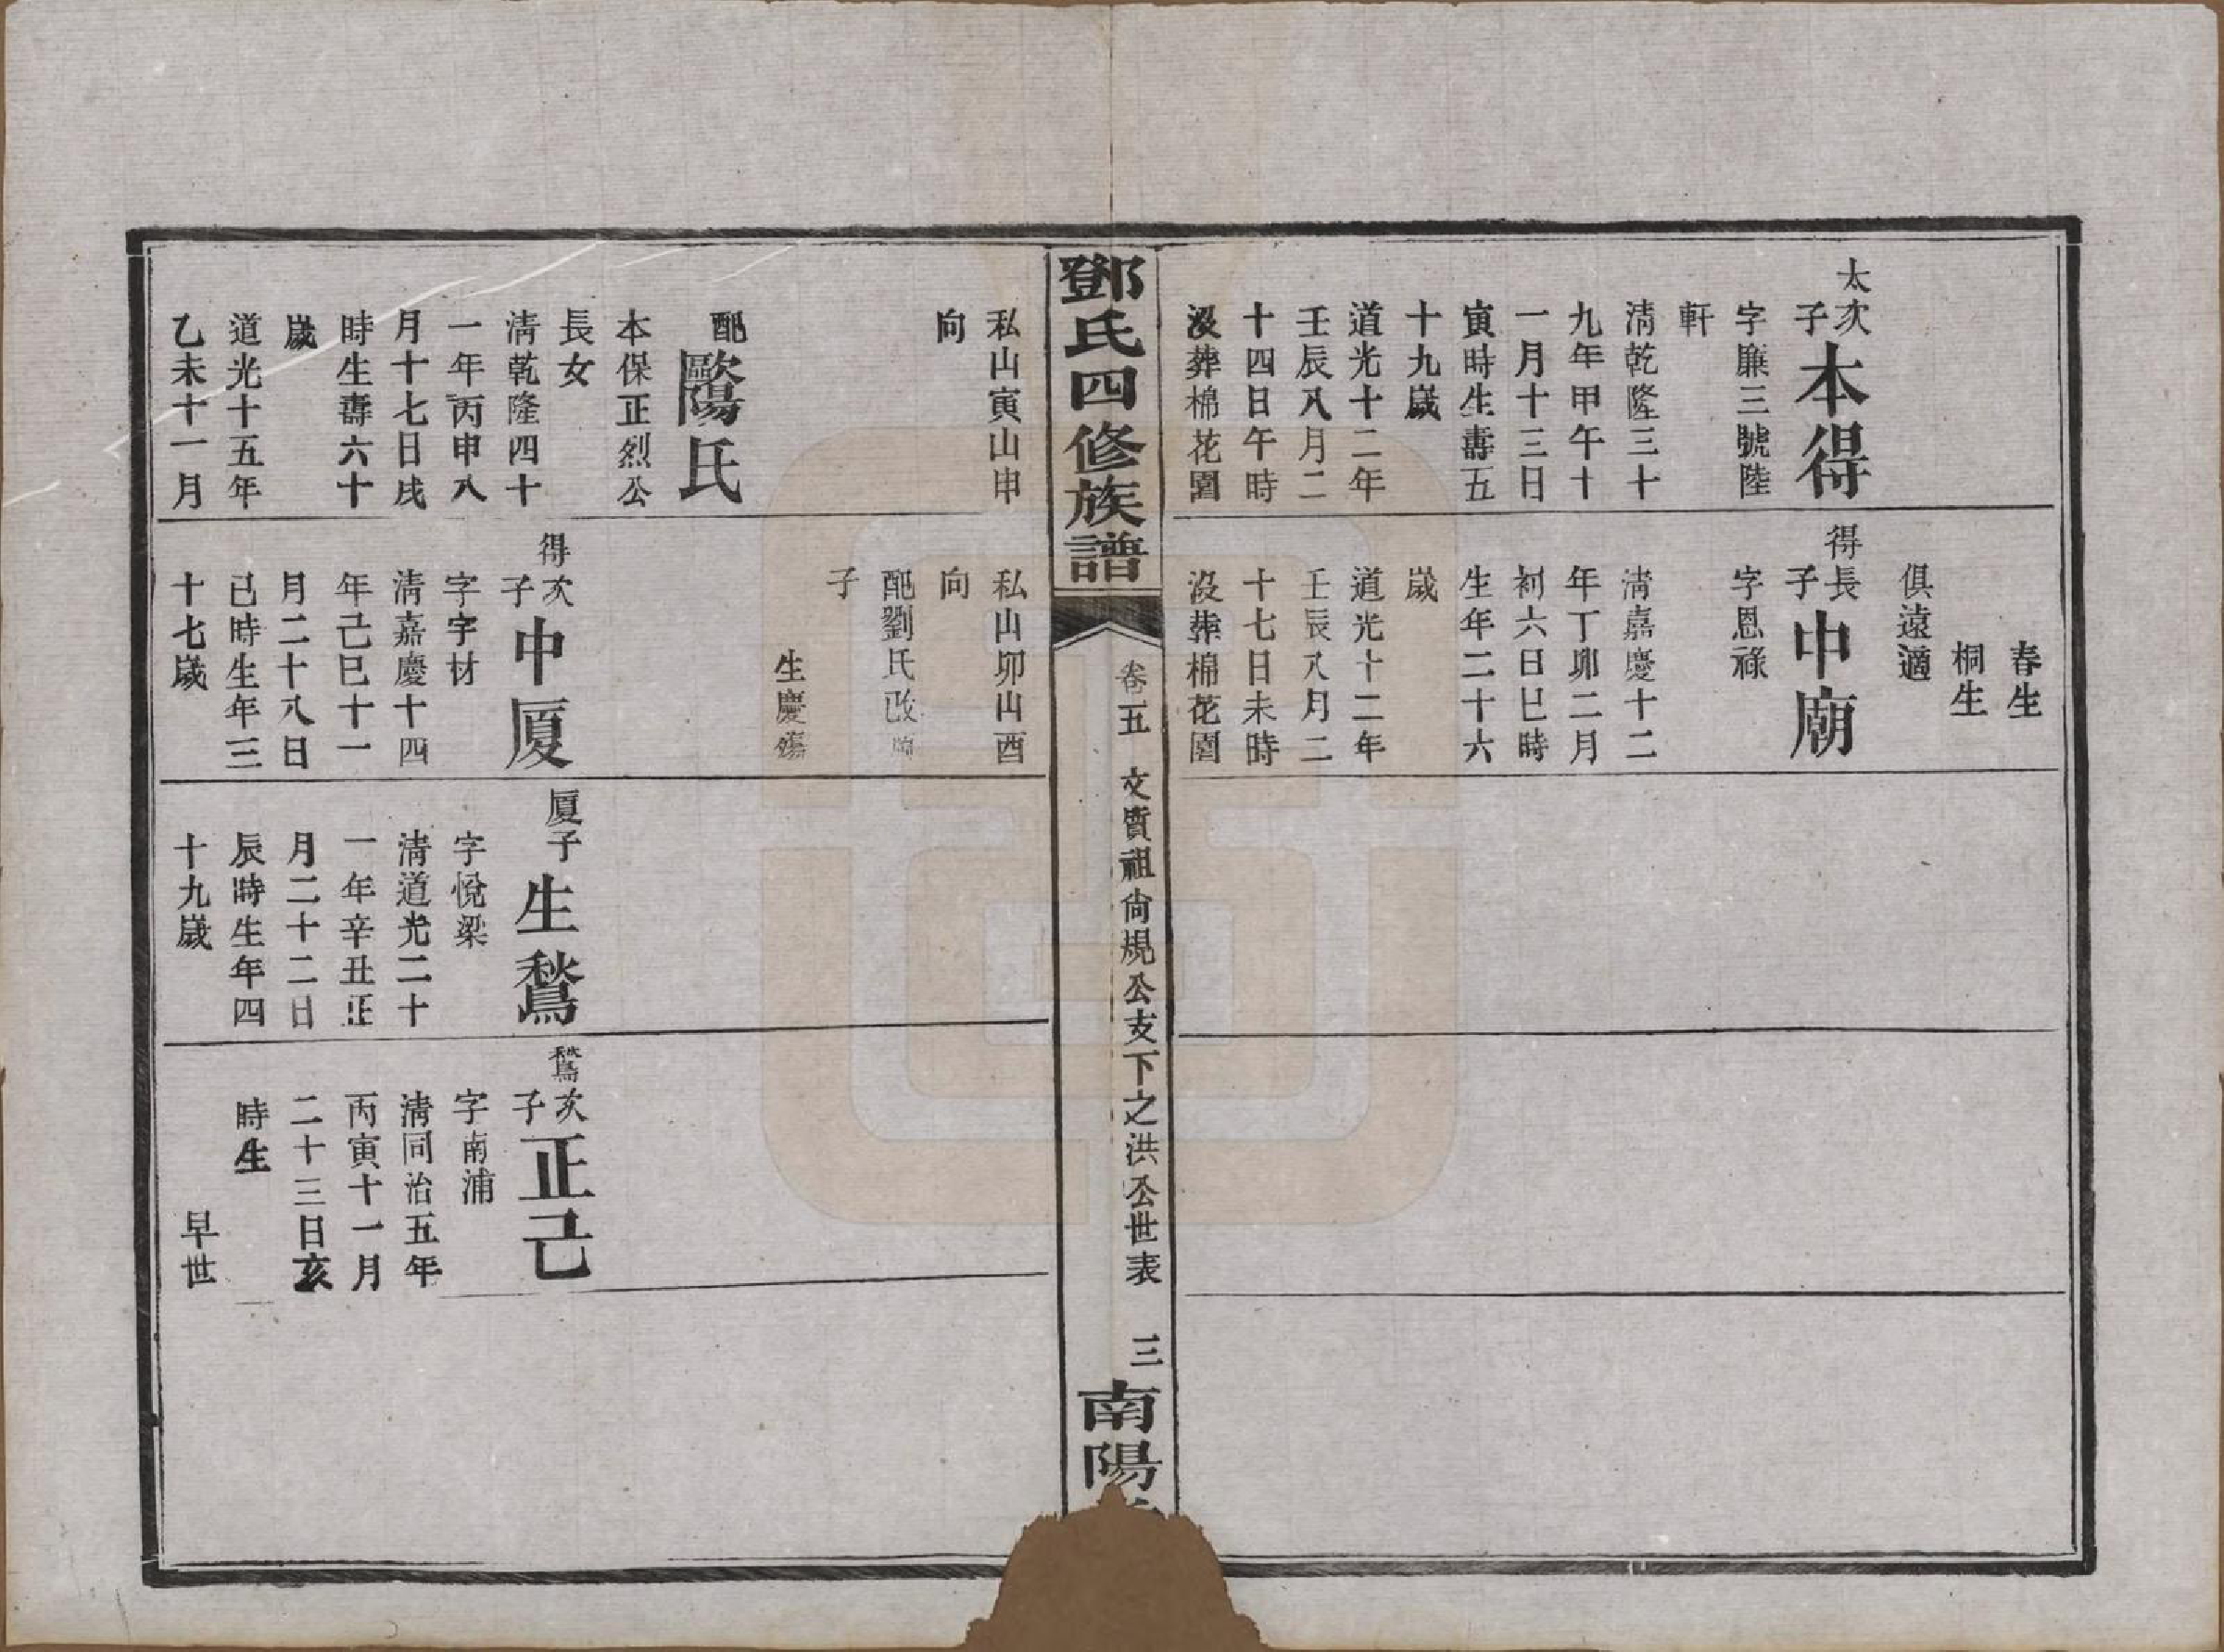 太次子本得
字廉三號陸
軒
清乾隆三十
九年甲午十
一月十三日
寅時生壽五
十九歲
道光十二年
壬辰八月二
十四日午時
沒葬棉花園
春生
桐生
俱遠適
得長子中廟
字恩祿
清嘉慶十二
年丁卯二月
初六日巳時
生年二十六
歲
道光十二年
壬辰八月二
十七日未時
沒葬棉花園
鄧氏四修族譜
卷五
文質祖尙規公支下之洪公世表
三
南陽
私山寅山申
向
配歐陽氏
本保正烈公
長女
清乾隆四十
一年丙申八
月十七日戌
時生壽六十
歲
道光十五年
乙未十一月
私山卯山酉
向
配劉氏改
子
生慶
得次子中厦
字字材
清嘉慶十四
年己巳十一
月二十八日
巳時生年三
十七歲
厦子生鶖
字悅梁
清道光二十
一年辛丑正
月二十二日
辰時生年四
十九歲
鶖次子正己
字南浦
清同治五年
丙寅十一月
二十三日亥
時生
早世